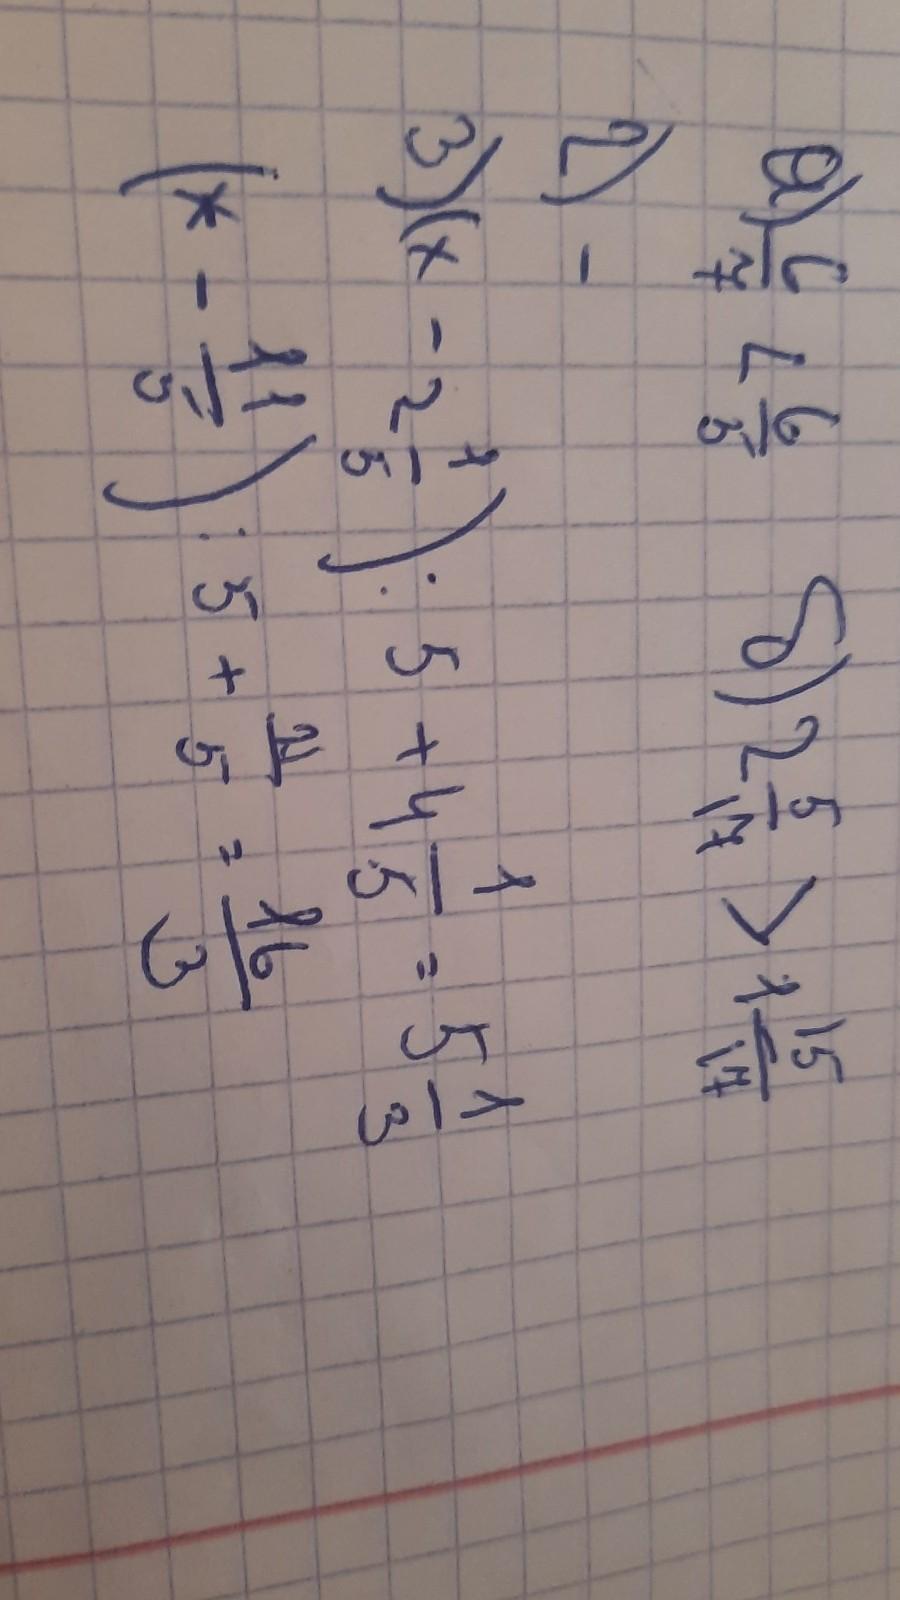 а) 6/7 < 6/5   б) 2 5/17 > 1 15/17
2) -
3) (x - 2 1/5) : 5 + 4 1/5 = 5 1/3
(x - 11/5) : 5 + 21/5 = 16/3